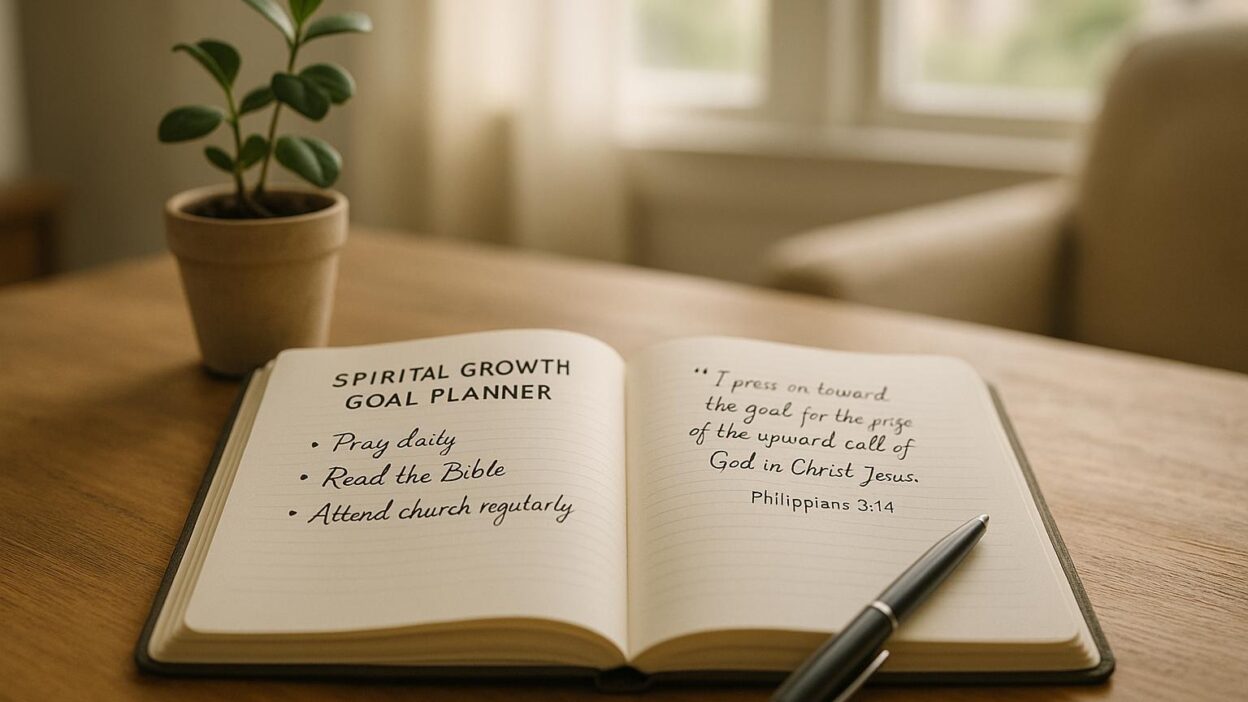 SPIRITAL GROWTH
GOAL PLANNER
• Pray daity
• Read the Bible
• Attend church regutarly
“I press on toward
the goal for the prize
of the upward call of
God in Christ Jesus.
Philippians 3:14